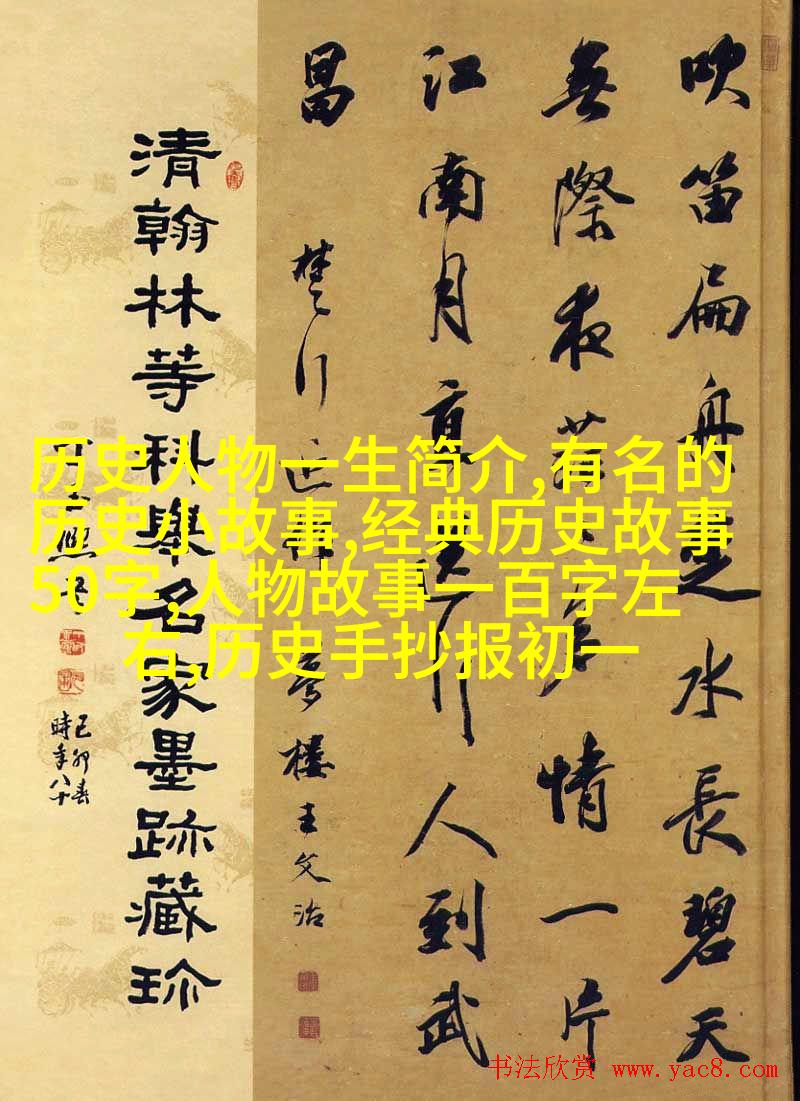 历史人物一生简介,有名的
历史小故事,经典历史故事
50字,人物故事一百字左
右,历史手抄报初一
吹笛扁舟水長碧天
無際夜情一片
江南月行人到武
昌
夢樓王文治
清翰林等科舉名家墨跡藏珍
己卯春
時年八十
书法欣赏 www.yac8.com